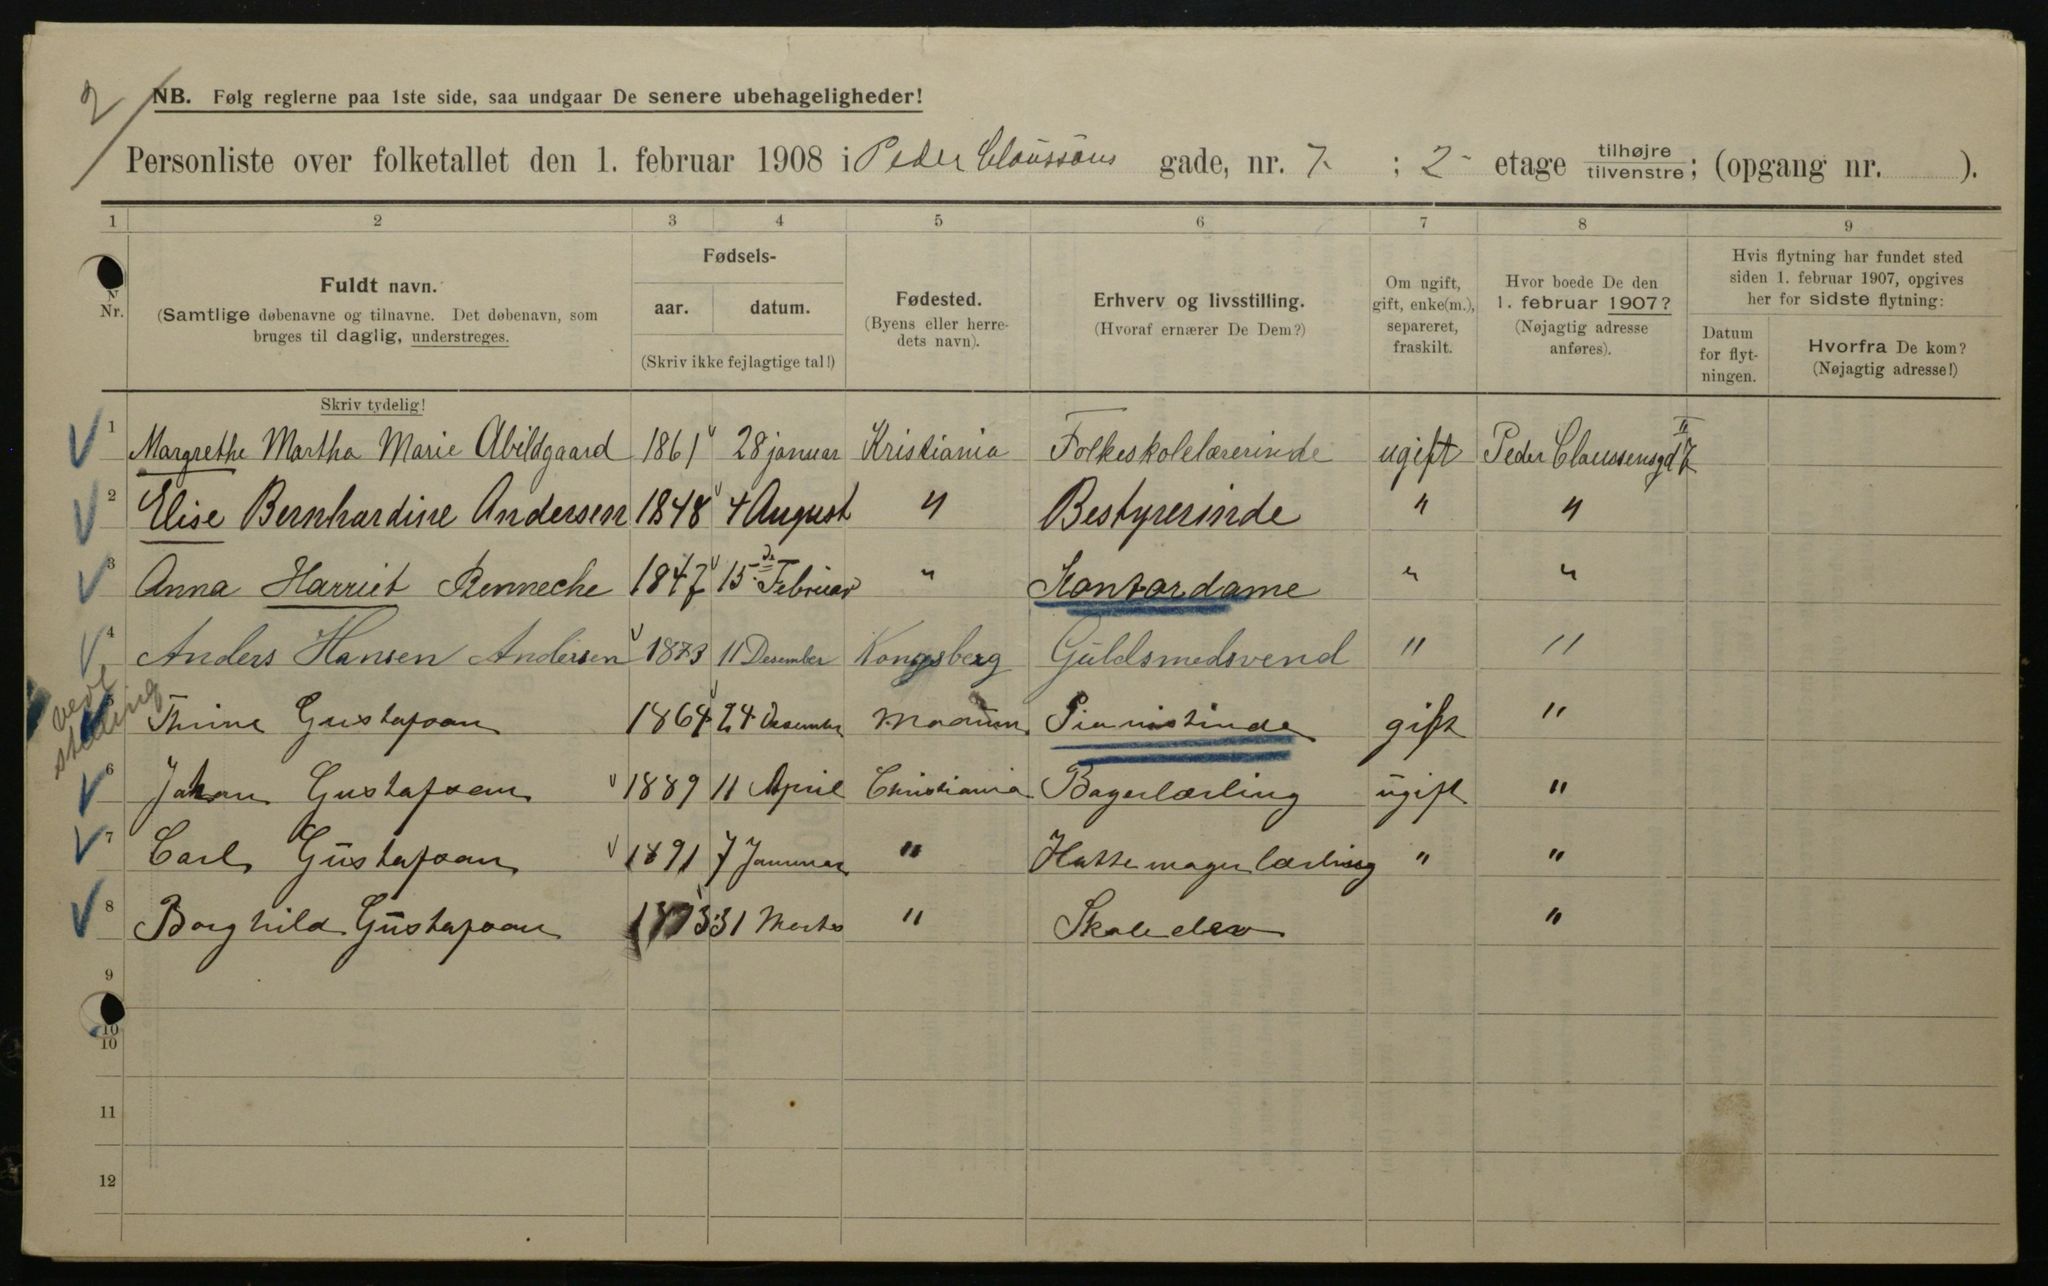 2
NB. Følg reglerne paa 1ste side, saa undgaar De senere ubehageligheder!
Personliste over folketallet den 1. februar 1908 i Peder Claussöns gade, nr. 7 ; 2 etage tilhøjre / tilvenstre; (opgang nr. ).
1 2 3 4 5 6 7 8 9
Nr.
Fuldt navn.
(Samtlige døbenavne og tilnavne. Det døbenavn, som
bruges til daglig, understreges.
Skriv tydelig!
Fødsels-
aar. datum.
(Skriv ikke fejlagtige tal!)
Fødested.
(Byens eller herre-
dets navn).
Erhverv og livsstilling.
(Hvoraf ernærer De Dem?)
Om ugift,
gift, enke(m.),
separeret,
fraskilt.
Hvor boede De den
1. februar 1907?
(Nøjagtig adresse
anføres).
Hvis flytning har fundet sted
siden 1. februar 1907, opgives
her for sidste flytning:
Datum
for flyt-
ningen.
Hvorfra De kom?
(Nøjagtig adresse!)
1 Margrethe Martha Marie Abildgaard 1861 28 januar Kristiania Folkeskolelærerinde ugift Peder Claussensgd 7 II
2 Elise Bernhardine Andersen 1848 4 August " Bestyrerinde " "
3 Anna Harriet Benneche 1847 15de Februar " Kontordame " "
4 Anders Hansen Andersen 1873 11 Desember Kongsberg Guldsmedsvend " "
5 Thrine Gustafson 1864 24 Desember Modum Pianistinde gift "
6 Johan Gustafson 1889 11 April Christiania Bagerlærling ugift "
7 Carl Gustafson 1891 7 Januar " Hattemagerlærling " "
8 Borghild Gustafson 31 Marts " Skoleelev "
9
10
10
11
12